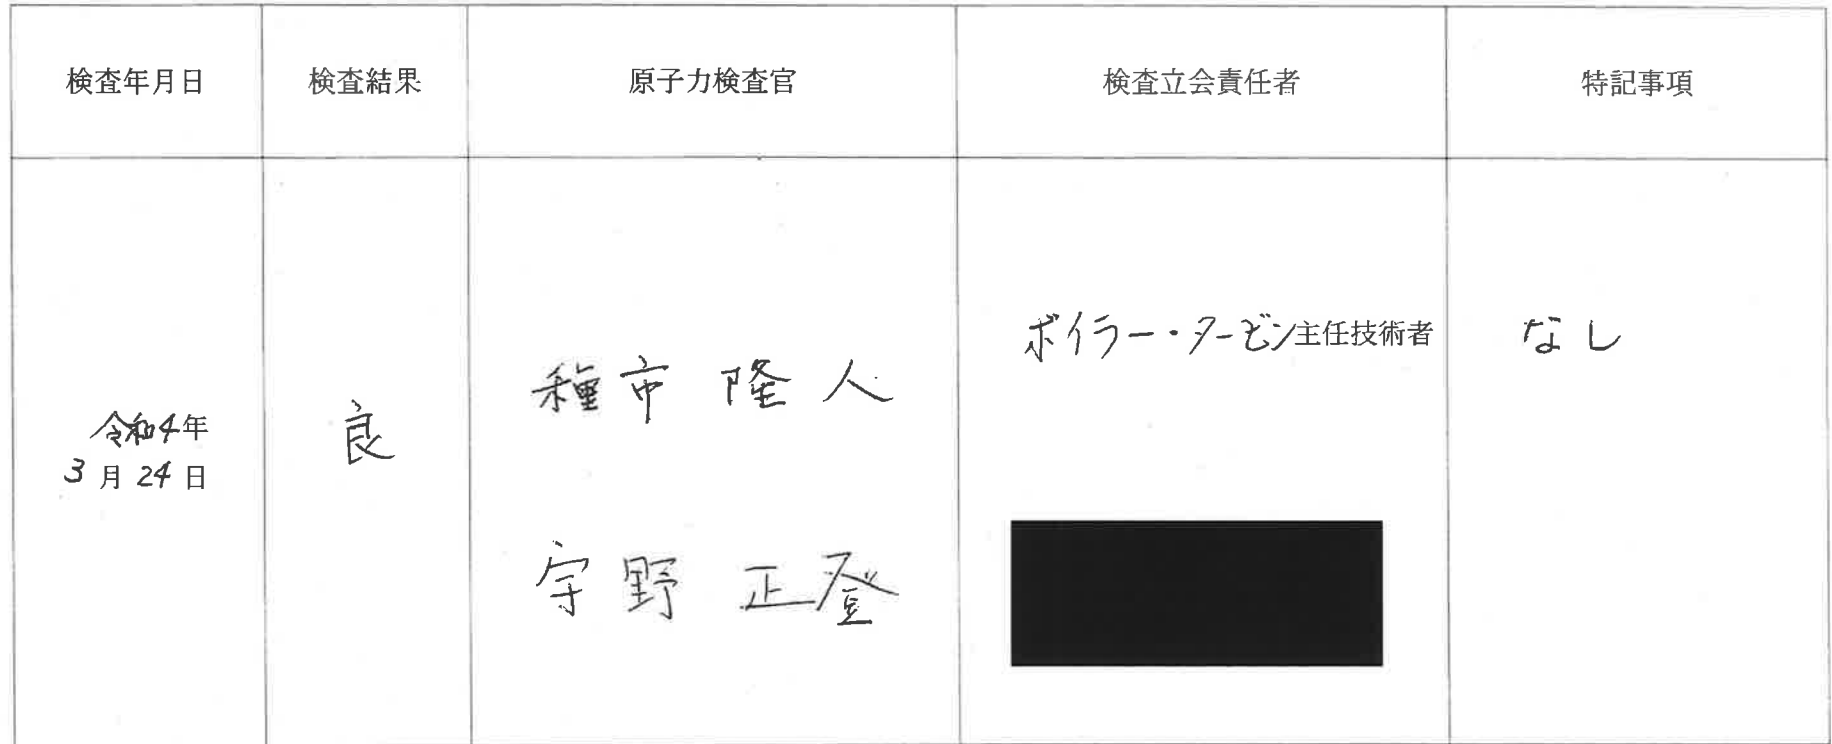 検査年月日 検査結果 原子力検査官 検査立会責任者 特記事項
令和4年
3月24日
良
種市 隆人
宇野 正登
ボイラー・タービン主任技術者
なし